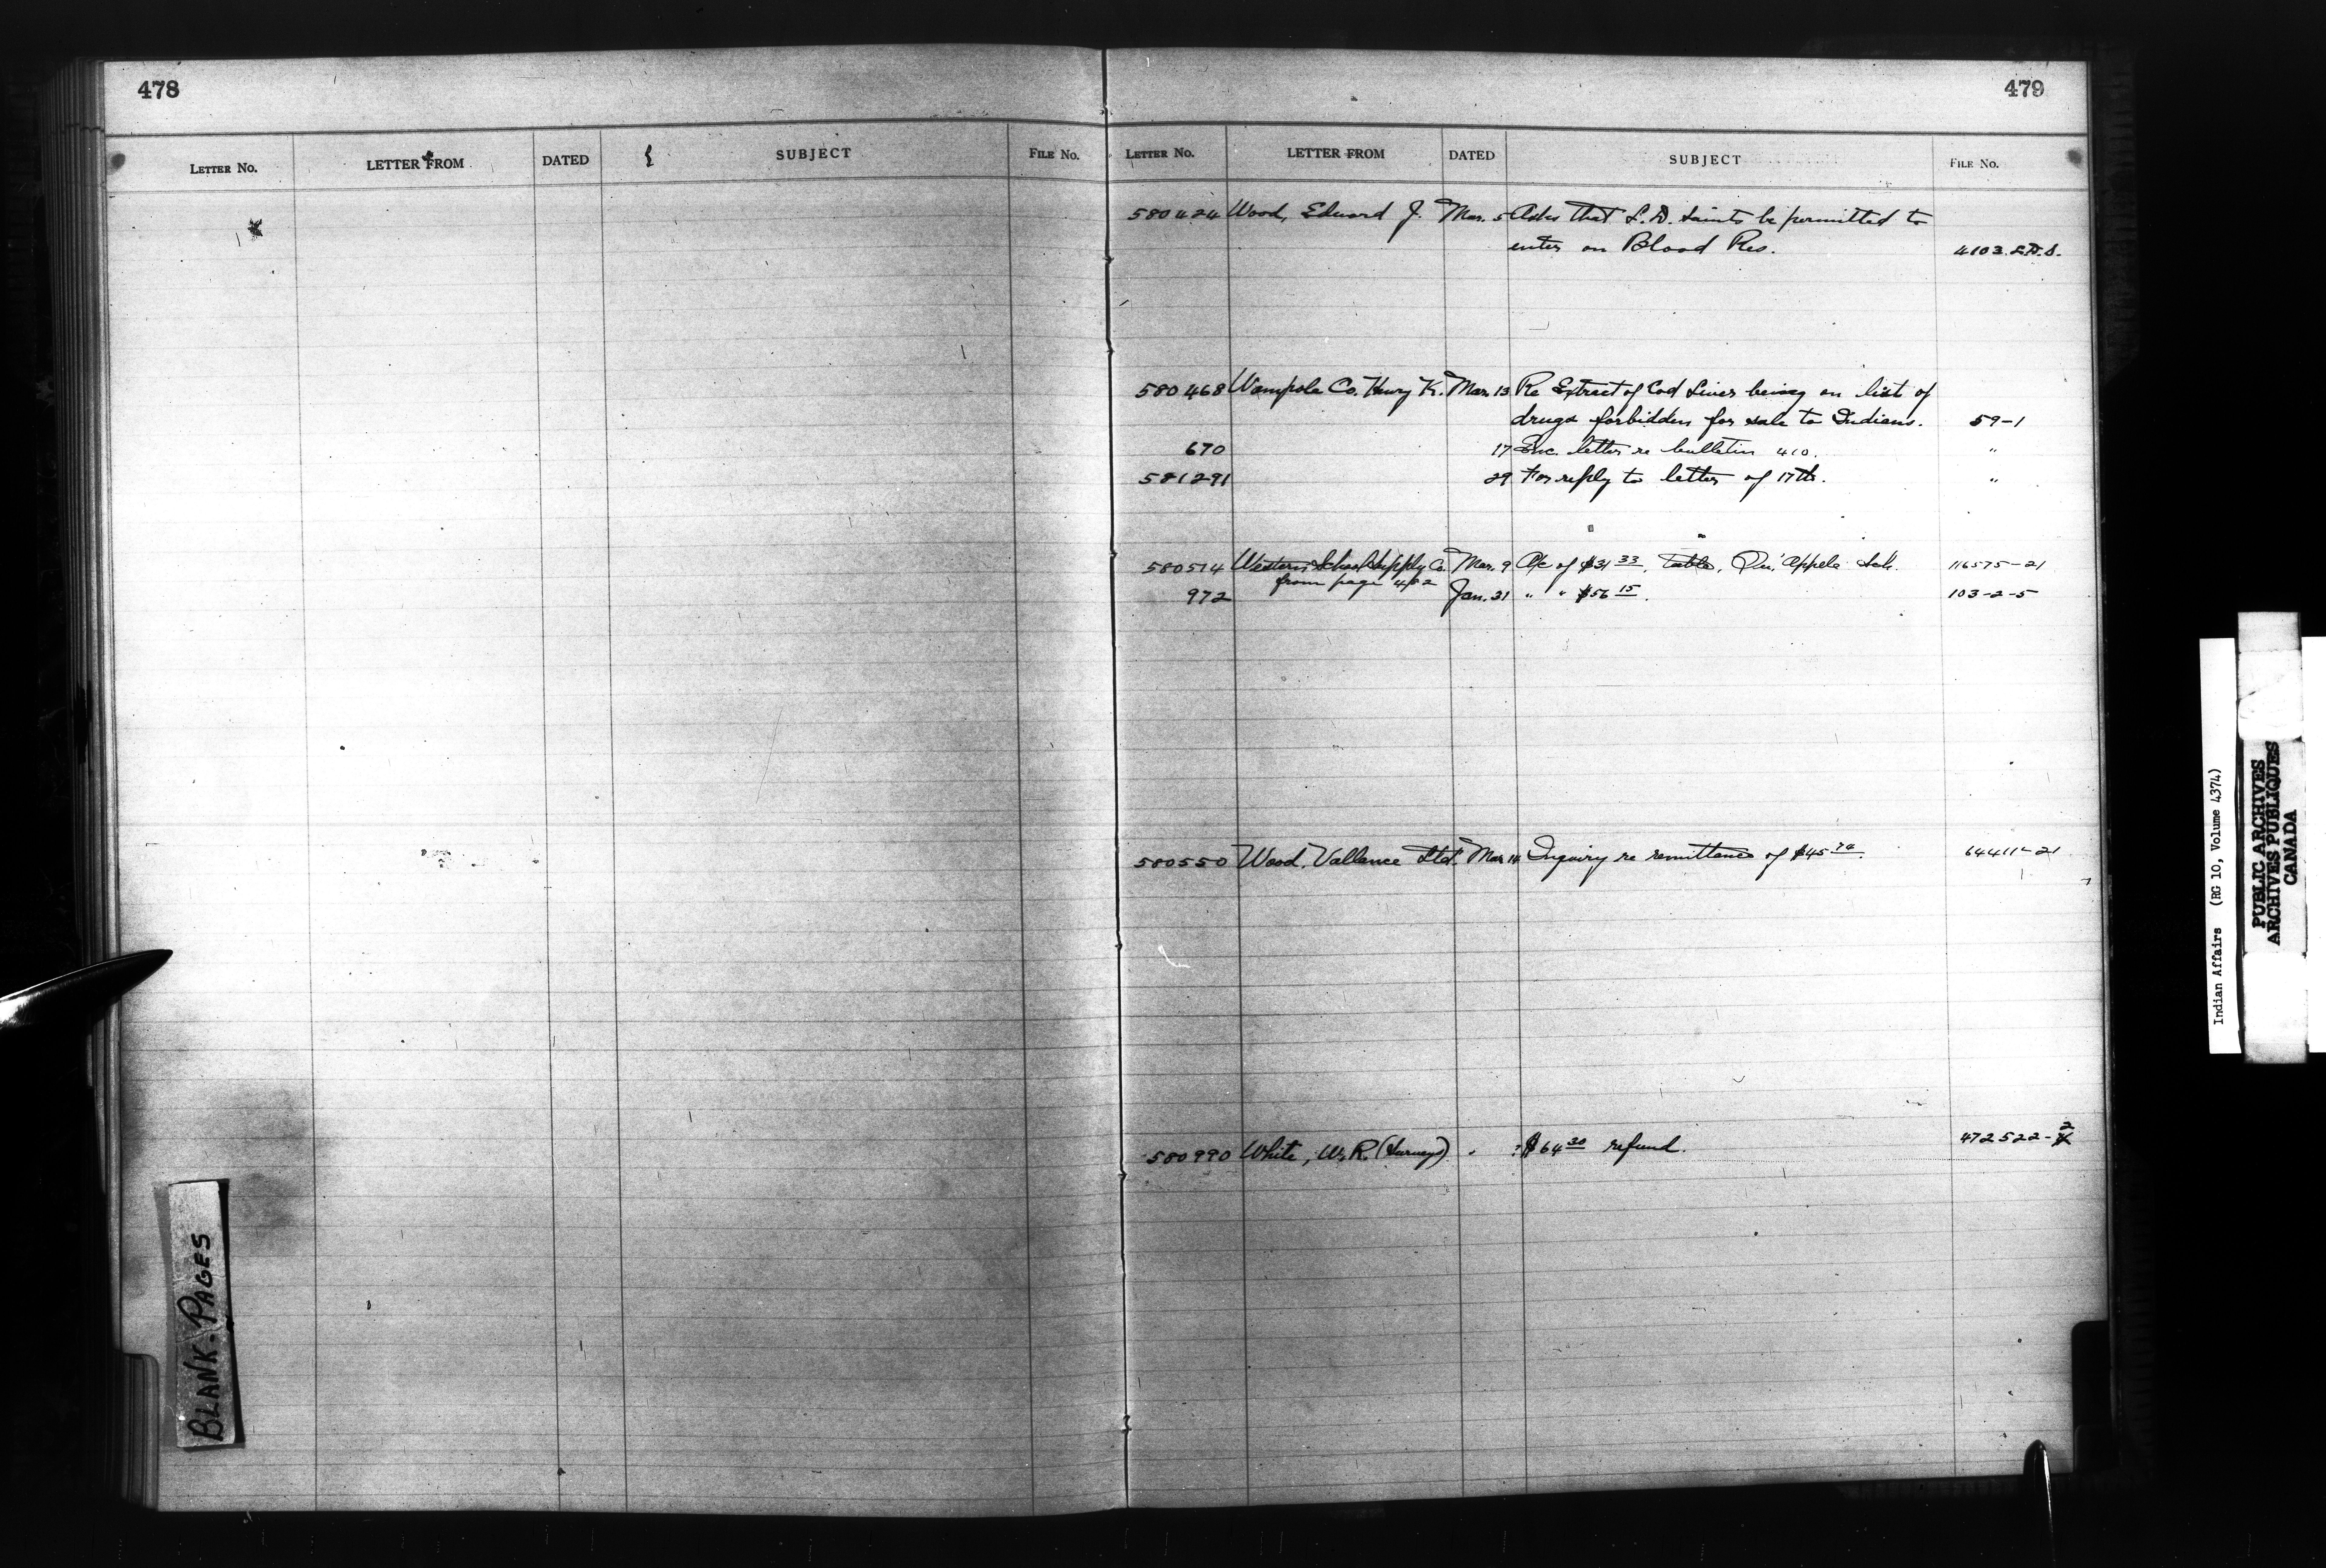 478
LETTER NO. LETTER FROM DATED SUBJECT FILE No.
BLANK-PAGES
479
LETTER No. LETTER FROM DATED SUBJECT FILE No.
580424 Wood, Edward J. Mar. 5 Asks that L.D. Saints be permitted to
enter on Blood Res. 4103. L.D.S.
580468 Wampole Co. Henry K. Mar. 13 Re Extract of Cod Liver being on list of
drugs forbidden for sale to Indians. 59-1
670 17 Enc. letter re bulletin 410. "
581291 29 For reply to letter of 17th. "
580514 Western School Supply Co. Mar. 9 A/c of $31 33, table, Qu'Appele Sch. 116575-21
from page 482
972 Jan. 31 " " $56 15. 103-2-5
580550 Wood, Vallance Ltd. Mar 14 Inquiry re remittance of $45 74. 64411-21
580990 White, W.R. (Surveys) " ? $64 30 refund. 472522-2
Indian Affairs (RG 10, Volume 4374)
PUBLIC ARCHIVES
ARCHIVES PUBLIQUES
CANADA